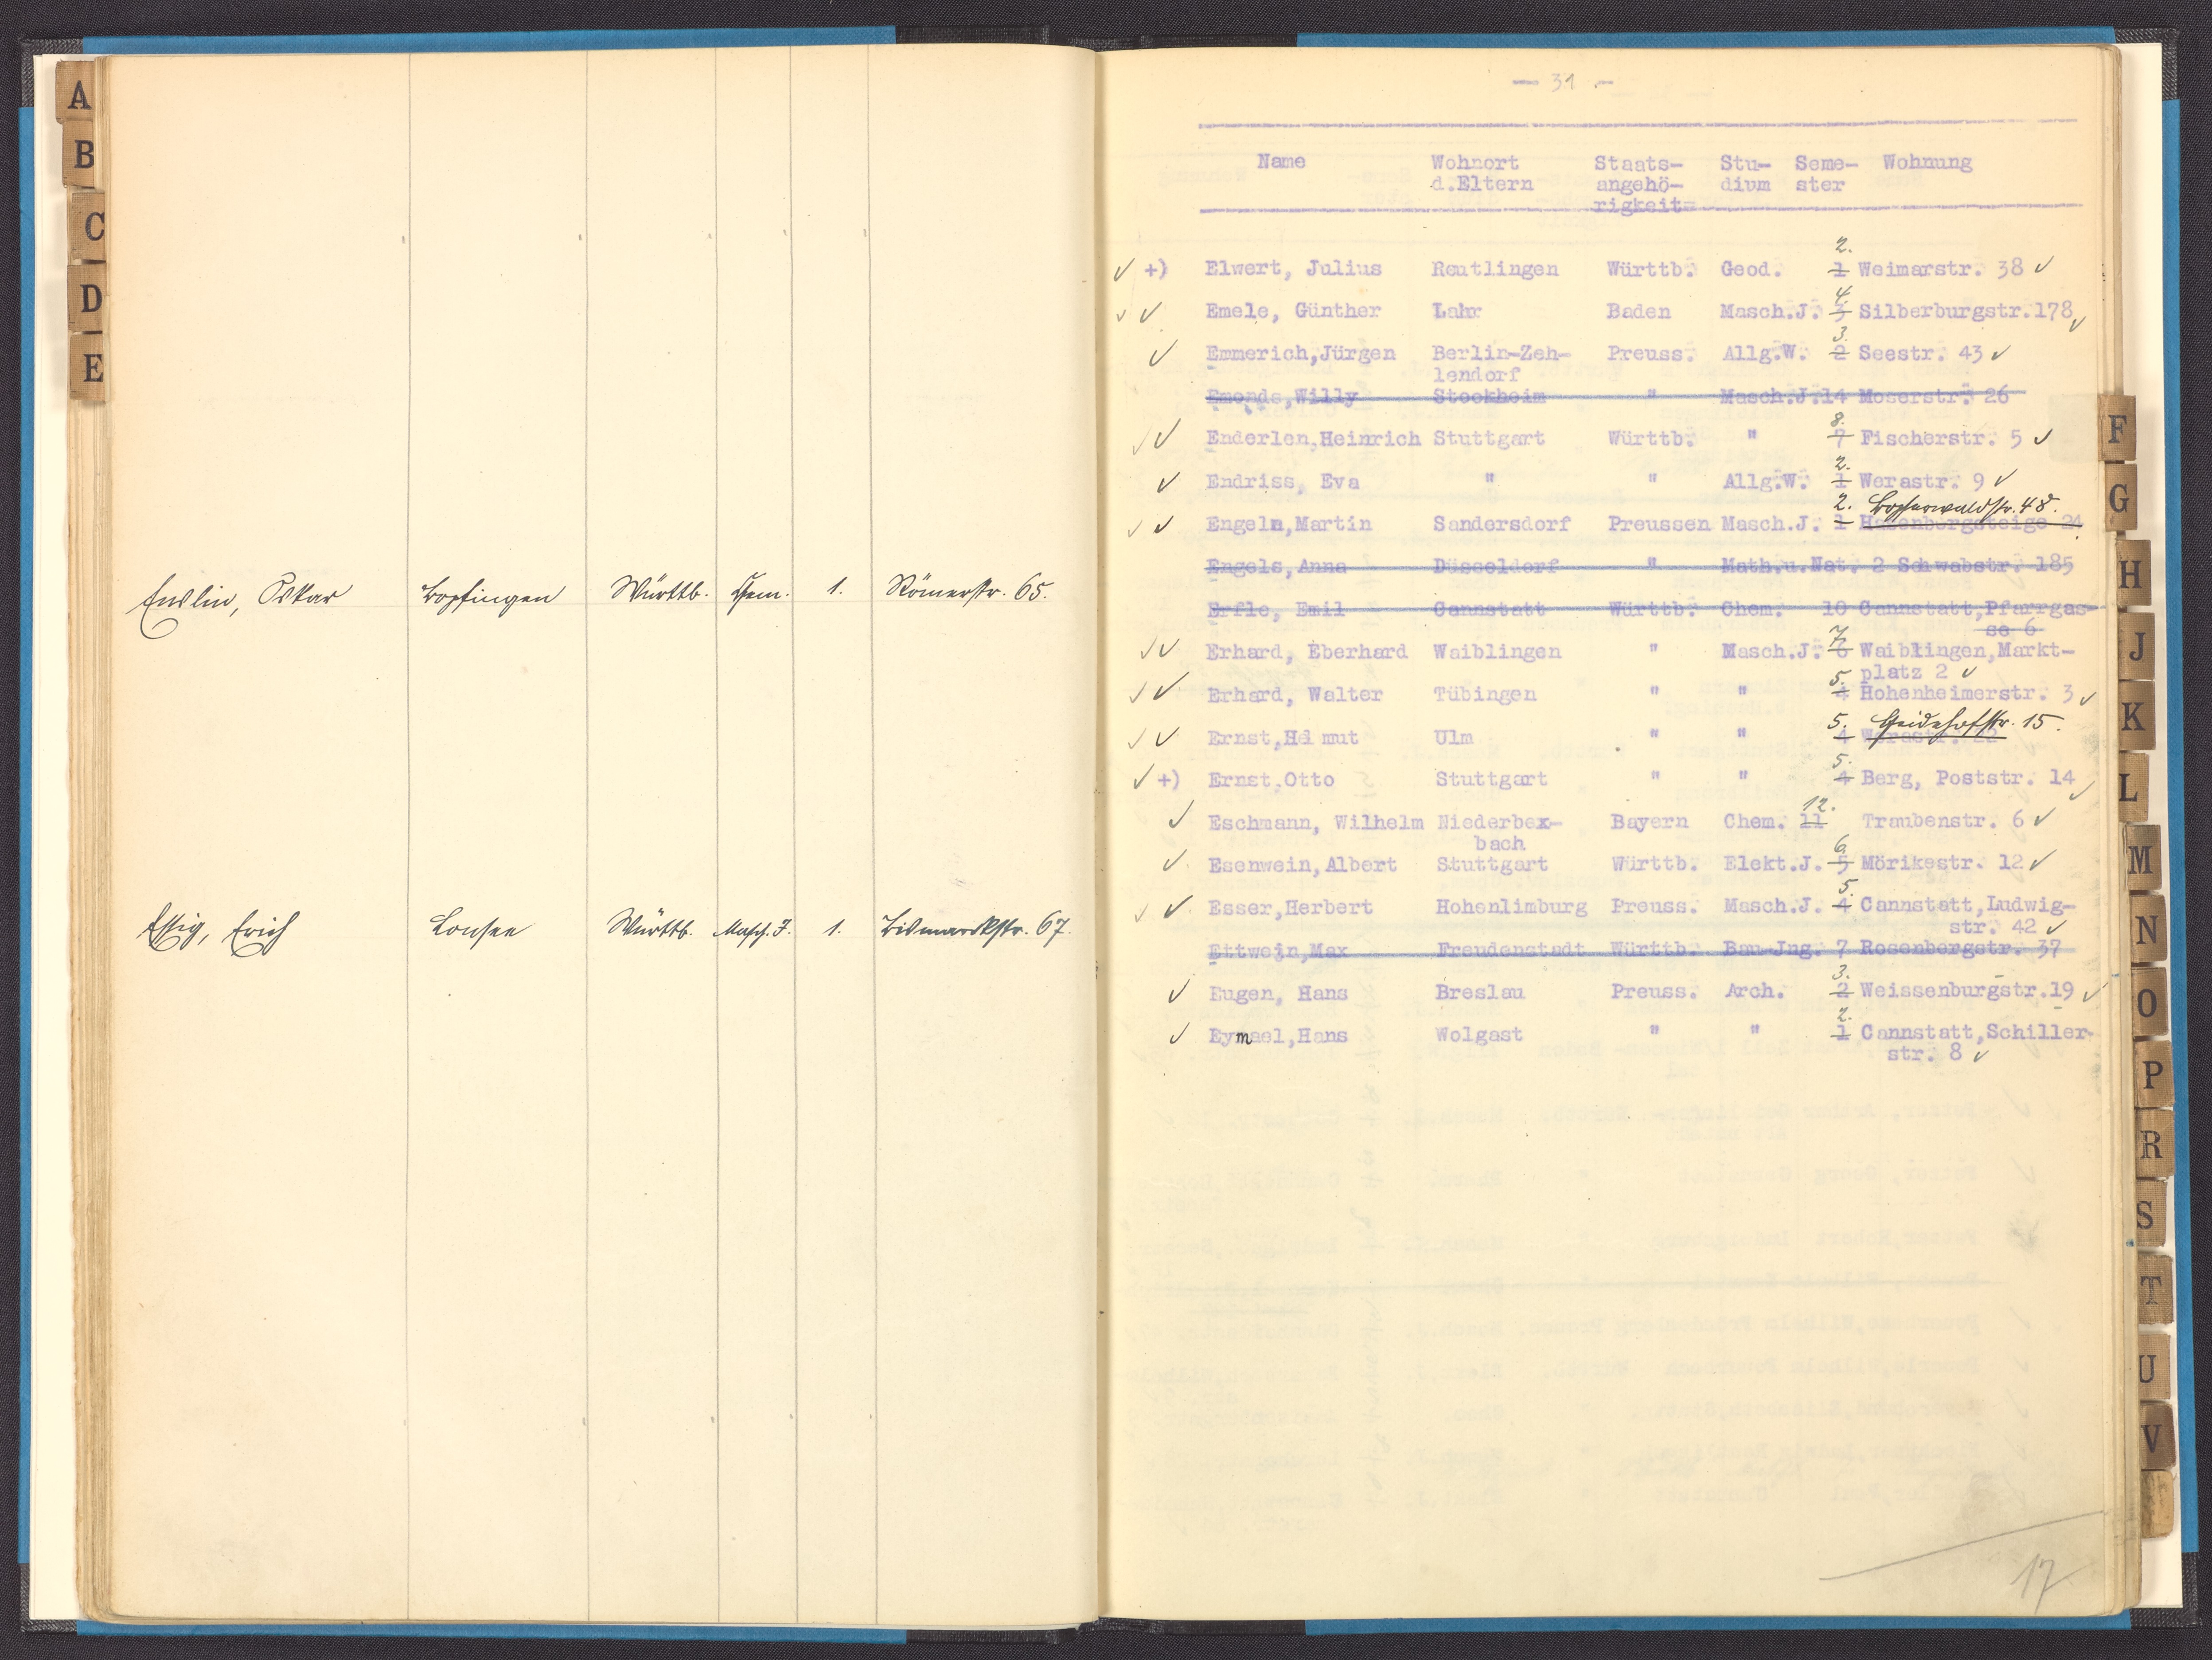 A
B
C
D
E
Enslin, Oskar Bopfingen Württb. Chem. 1. Römerstr. 65.
Essig, Erich Lonsee Württb. Masch. J. 1. Bismarckstr. 67.
— 31 .—
Name Wohnort Staats- Stu- Seme- Wohnung
d.Eltern angehö- dium ster
rigkeit
2.
✓ +) Elwert, Julius Reutlingen Württb. Geod. 1 Weimarstr. 38 ✓
4.
✓ ✓ Emele, Günther Lahr Baden Masch.J. 3 Silberburgstr.178 ✓
3.
✓ Emmerich,Jürgen Berlin-Zeh- Preuss. Allg.W. 2 Seestr. 43 ✓
lendorf
Emonds,Willy Stockheim " Masch.J.14 Moserstr. 26
8.
✓ ✓ Enderlen,Heinrich Stuttgart Württb. " 7 Fischerstr. 5 ✓
2.
✓ Endriss, Eva " " Allg.W. 1 Werastr. 9 ✓
2. Bopserwaldstr. 48.
✓ ✓ Engeln,Martin Sandersdorf Preussen Masch.J. 1 Hasenbergsteige 24
Engels,Anna Düsseldorf " Math.u.Nat. 2 Schwabstr. 185
Erfle, Emil Cannstatt Württb. Chem. 10 Cannstatt,Pfarrgas-
se 6
7
✓ ✓ Erhard, Eberhard Waiblingen " Masch.J. 6 Waiblingen,Markt-
5. platz 2 ✓
✓ ✓ Erhard, Walter Tübingen " " 4 Hohenheimerstr. 3 ✓
5. Heidehofstr. 15.
✓ ✓ Ernst,Helmut Ulm " " 4 Werastr. 22
5.
✓ +) Ernst,Otto Stuttgart " " 4 Berg, Poststr. 14 ✓
12.
✓ Eschmann, Wilhelm Niederbex- Bayern Chem. 11 Traubenstr. 6 ✓
bach
6
✓ Esenwein,Albert Stuttgart Württb. Elekt.J. 5 Mörikestr. 12 ✓
5.
✓ ✓ Esser,Herbert Hohenlimburg Preuss. Masch.J. 4 Cannstatt,Ludwig-
str. 42 ✓
Ettwein,Max Freudenstadt Württb. Bau-Jng. 7 Rosenbergstr. 37
3.
✓ Eugen, Hans Breslau Preuss. Arch. 2 Weissenburgstr.19 ✓
2.
✓ Eymael,Hans Wolgast " " 1 Cannstatt,Schiller-
str. 8 ✓
17
F
G
H
J
K
L
M
N
O
P
R
S
T
U
V